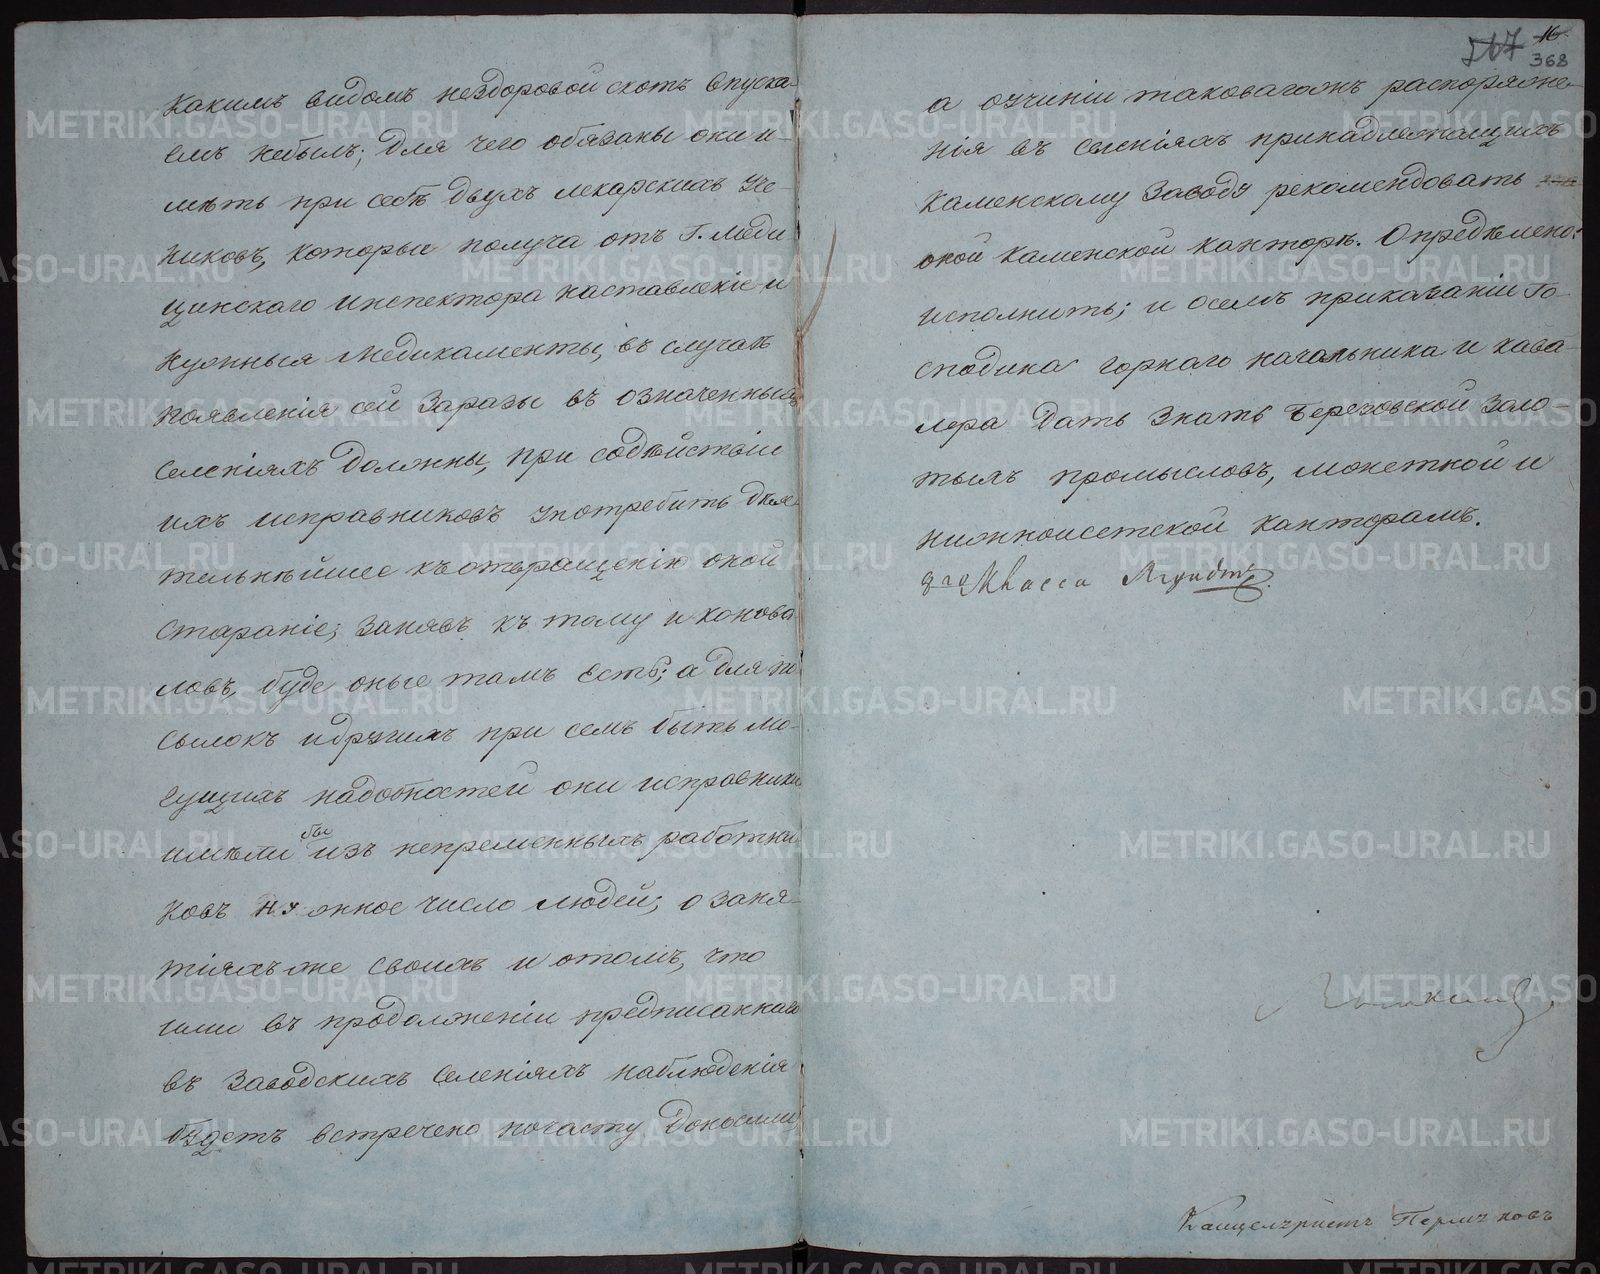 какимъ видомъ нездоровой скотъ впуска-
емъ небылъ; для чего обязаны они и-
мѣть при себѣ двухъ лекарскихъ уче-
никовъ, которыи получа отъ Г. Меди
цинскаго инспектора наставленіе и
нужныя медикаменты, въ случаѣ
появленія сей заразы въ означенныхъ
селеніяхъ должны, при содѣйствіи
ихъ исправниковъ употребить дѣя
тельнѣйшее къ отвращенію оной
стараніе; занявъ къ тому и конова
ловъ, буде оные тамъ есть; а для по
сылокъ и другихъ при семъ быть мо-
гущихъ надобностей они исправники
имѣли бы изъ непременныхъ работни
ковъ нужное число людей; о заня-
тіяхъ же своихъ и отомъ, что
ими въ продолженіи предписаннаго
въ заводскихъ селеніяхъ наблюденія
будетъ встречено почасту доносили
368
а оучиніи таковагожъ распоряже-
нія въ селеніяхъ принадлежащихъ
Каменскому заводу рекомендовать
оной Каменской канторѣ. Опредѣлено:
исполнить; и осемъ приказаніи Го-
сподина горнаго начальника и кава-
лера дать знать Березовской золо
тыхъ промысловъ, монетной и
нижноисетской канторамъ.
Канцеляристъ Пермяковъ
METRIKI.GASO-URAL.RU